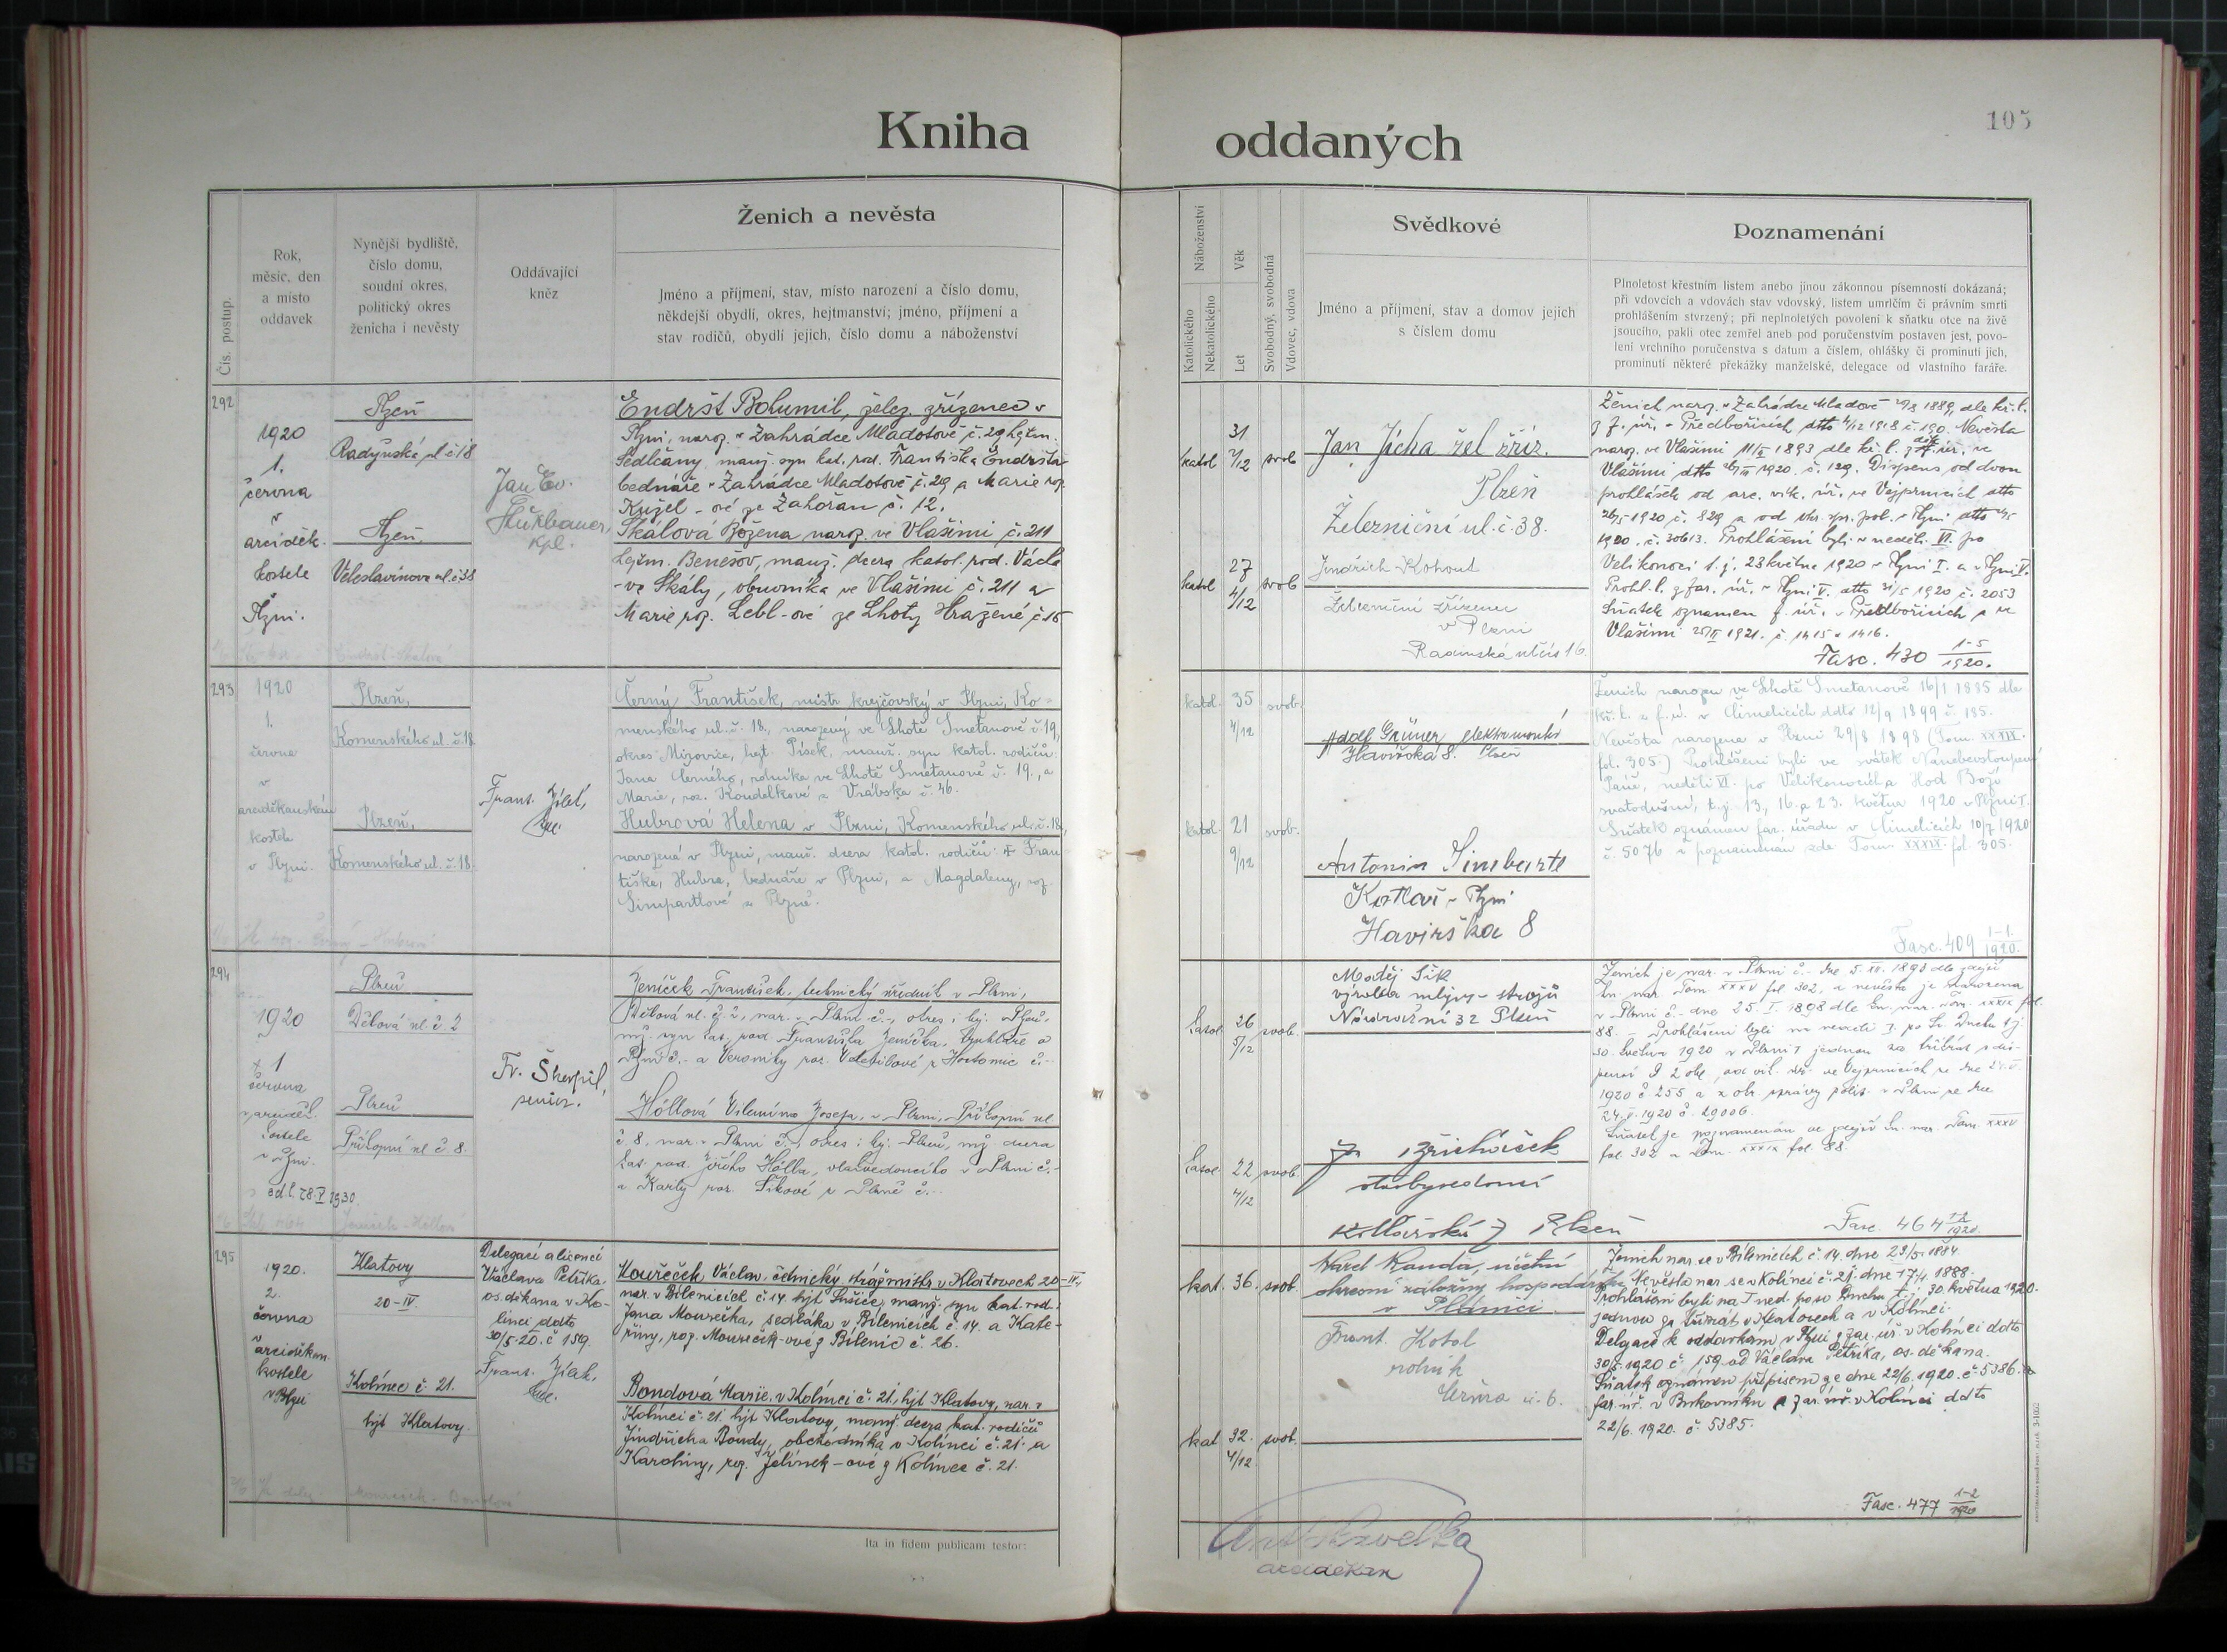 Kniha
oddaných
105
Čís. postup.
Rok,
měsíc, den
a místo
oddavek
Nynější bydliště,
číslo domu,
soudní okres,
politický okres
ženicha i nevěsty
Oddávající
kněz
Ženich a nevěsta
Jméno a příjmení, stav, místo narození a číslo domu,
někdejší obydlí, okres, hejtmanství; jméno, příjmení a
stav rodičů, obydlí jejich, číslo domu a náboženství
Náboženství
Katolického
Nekatolického
Věk
Let
Svobodný, svobodná
Vdovec, vdova
Svědkové
Jméno a příjmení, stav a domov jejich
s číslem domu
Poznamenání
Plnoletost křestním listem anebo jinou zákonnou písemností dokázaná;
při vdovcích a vdovách stav vdovský, listem umrlčím či právním smrti
prohlášením stvrzený; při neplnoletých povolení k sňatku otce na živě
jsoucího, pakli otec zemřel aneb pod poručenstvím postaven jest, povo-
lení vrchního poručenstva s datum a číslem, ohlášky či prominutí jich,
prominutí některé překážky manželské, delegace od vlastního faráře.
292
1920
1.
června
v
arciděk.
kostele
v
Plzni.
Plzeň
Radyňská ul č 18
Plzeň.
Veleslavínova ul. č 38
Jan Ev.
kpl.
Endršt Bohumil, želez. zřízenec v
Plzni, naroz. v Zahrádce Mladotově č. 29 hejtm.
Sedlčany, manž. syn kat. rod. Františka Endršta
bednáře v Zahrádce Mladotově č. 29 a Marie roz.
Kužel-ové ze Zahořan č. 12.
Skálová Božena naroz. ve Vlašimi č. 211
hejtm. Benešov, manž. dcera katol. rod. Václa
-va Skály, obuvníka ve Vlašimi č. 211 a
Marie roz. Lebl-ové ze Lhoty Hražené č 15
katol
31
7/12
svob
katol
27
4/12
svob
Jan Jícha žel zříz.
Plzeň
Železniční ul. č. 38.
Jindřich Kohout
Železniční zřízenec
v Plzni
Radinská ul čís 16.
Ženich naroz. v Zahrádce Mladově 1889, dle kř. l.
z f. úř. v Předbořicích dtto 4/12 1918 č. 190. Nevěsta
naroz. ve Vlašimi 11/ 1893 dle kř. l. z děk. úř. ve
Vlašimi dtto 1920, č. 129. Dispens od dvou
prohlášek od arc. vik. úř. ve Vejprnicích dtto
26/5 1920 č. 829 a od okr. spr. pol. v Plzni dtto
1920. č. 30613. Prohlášeni byli v neděli VI. po
Velikonoci t. j. 23 května 1920 v Plzni I. a v Plzni V.
Prohl. l. z far. úř. v Plzni V. dtto 31/5 1920 č. 2053
Sňatek oznámen f. úř. v Předbořicích a ve
Vlašimi 1921. č. 1415 a 1416.
Fasc. 430 1-5
1920.
293
1920
1.
června
v
arciděkanském
kostele
v Plzni.
Plzeň,
Komenského ul. č. 18
Plzeň,
Komenského ul. č. 18.
Frant. Jílek,
kpl.
Černý František, mistr krejčovský v Plzni, Ko=
menského ul. č. 18., narozený ve Lhotě Smetanově č. 19,
okres Mirovice, hejt. Písek, manž. syn katol. rodičů:
Jana Černého, rolníka ve Lhotě Smetanově č. 19., a
Marie, roz. Koudelkové z Vrábska č. 46.
Hubrová Helena v Plzni, Komenského ul. č. 18,
narozená v Plzni, manž. dcera katol. rodičů: † Fran
tiška, Hubra, bednáře v Plzni, a Magdaleny, roz.
Simpartlové z Plzně.
katol.
35
4/12
svob.
katol.
21
9/12
svob.
Adolf Grüner elektromontér
Havířská 8. Plzeň
Antonín Simbartl
Kotlář v Plzni
Havířska 8
Ženich narozen ve Lhotě Smetanově 16/1 1885 dle
kř. l. z f. ú. v Čimelicích ddto 12/9 1899 č. 185.
Nevěsta narozena v Plzni 29/8 1898 (Tom. XXXIX.
fol. 305.) Prohlášeni byli ve svátek Nanebevstoupení
Páně, neděli VI. po Velikonocích a Hod Boží
svatodušní, t. j. 13, 16. a 23. května 1920 v Plzni I.
Sňatek oznámen far. úřadu v Čimelicích 10/7 1920
č. 5076 a poznamenán zde Tom XXXIX. fol. 305.
Fasc. 409 1-1.
1920.
294
1920
1
června
v arciděk.
kostele
v Plzni.
Plzeň
Dětová ul. č. 2
Plzeň
Příkopní ul č 8.
Fr. Škarpil,
senior.
Jeníček František, technický úředník v Plzni,
Dětová ul. č. 2, nar. v Plzni č.-, okres i hj. Plzeň,
mž. syn kat. rod. Františka Jeníčka, truhláře v
Plzni č.- a Veroniky roz. z Hostomic č.-
Höllová Vilemína Josefa, v Plzni, Příkopní ul.
č. 8, nar. v Plzni č.-, okres i hj. Plzeň, mž. dcera
kat. rod. Jiřího Hölla, v Plzni č.-
a Karly roz. Šikové z Plzně č.-
katol.
26
5/12
svob.
katol.
22
4/12
svob.
Matěj Šik
výroba mlýns. strojů
Nádražní 32 Plzeň
stavbyvedoucí
Kollárská 7 Plzeň
Ženich je nar. v Plzni č.- dne 5. XII. 1893 dle zdejší
kn. nar. Tom XXXV fol 302, a nevěsta je narozena
v Plzni č.- dne 25. I. 1898 dle kn. nar. Tom. XXXIX fol.
88. - Prohlášeni byli na neděli I. po Sv. Duchu t. j.
30. května 1920 v Plzni I jednou za třikrát s dis-
pensí z 2 ohl. od vik. úř. ve Vejprnicích ze dne
1920 č 255 a z okr. správy polit. v Plzni ze dne
24. V. 1920 č. 29006.
Sňatek je poznamenán ve zdejší kn. nar. Tom XXXV
fol. 302 a Tom. XXXIX fol. 88.
Fasc. 464
1920
295
1920.
2.
června
v
arciděkan.
kostele
v Plzni
Klatovy
20-IV.
Kolinec č. 21.
hjt Klatovy.
Delegací a licencí
Václava Petříka
os. děkana v Ko-
linci ddto
30/5 20. č 159.
Frant. Jílek,
kpl.
Mouřeček Václav, četnický strážmistr v Klatovech 20-IV.
nar. v Bílenicích č. 14. hjt Sušice, manž. syn kat. rod.:
Jana Mourečka, sedláka v Bílenicích č. 14. a Kate-
řiny, roz. Mouřeček-ové z Bílenic č. 26.
Bondová Marie, v Kolinci č. 21, hjt Klatovy, nar. v
Kolinci č. 21. hjt Klatovy, manž. dcera kat. rodičů
Jindřicha Bondy, obchodníka v Kolinci č. 21. a
Karoliny, roz. Jelínek-ové z Kolince č. 21.
kat.
36.
svob.
kat
32.
4/12
svob.
Karel Kanda, účetní
okresní záložny hospodářské
v Plánici.
Frant. Kotal
rolník
č. 6.
Ženich nar. se v Bílenicích č. 14. dne 23/5. 1884.
Nevěsta nar. se v Kolinci č. 21. dne 17/4. 1888.
Prohlášeni byli na I ned. po sv. Duchu t. j. 30. května 1920.
jednou za třikrát v Klatovech a v Kolinci.
Delgace k oddavkám v Plzni z far. úř. v Kolinci ddto
30/5 1920 č 159 od Václava Petříka, os. děkana.
Sňatek oznámen přípisem ze dne 22/6. 1920. č 5386.
far. úř. v Bukovníku a far. úř. v Kolinci ddto
22/6. 1920. č. 5385.
Fasc. 477 1-2
1920
Ita in fidem publicam testor:
arciděkan